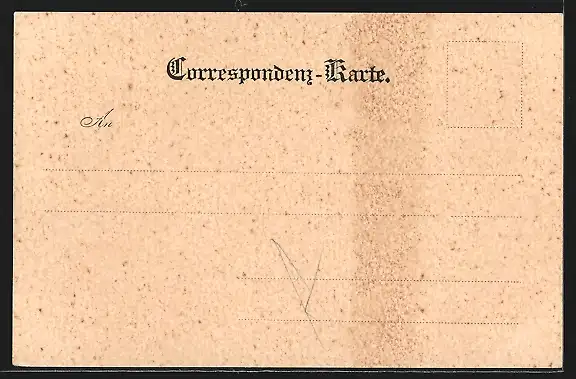 Correspondenz-Karte.
An